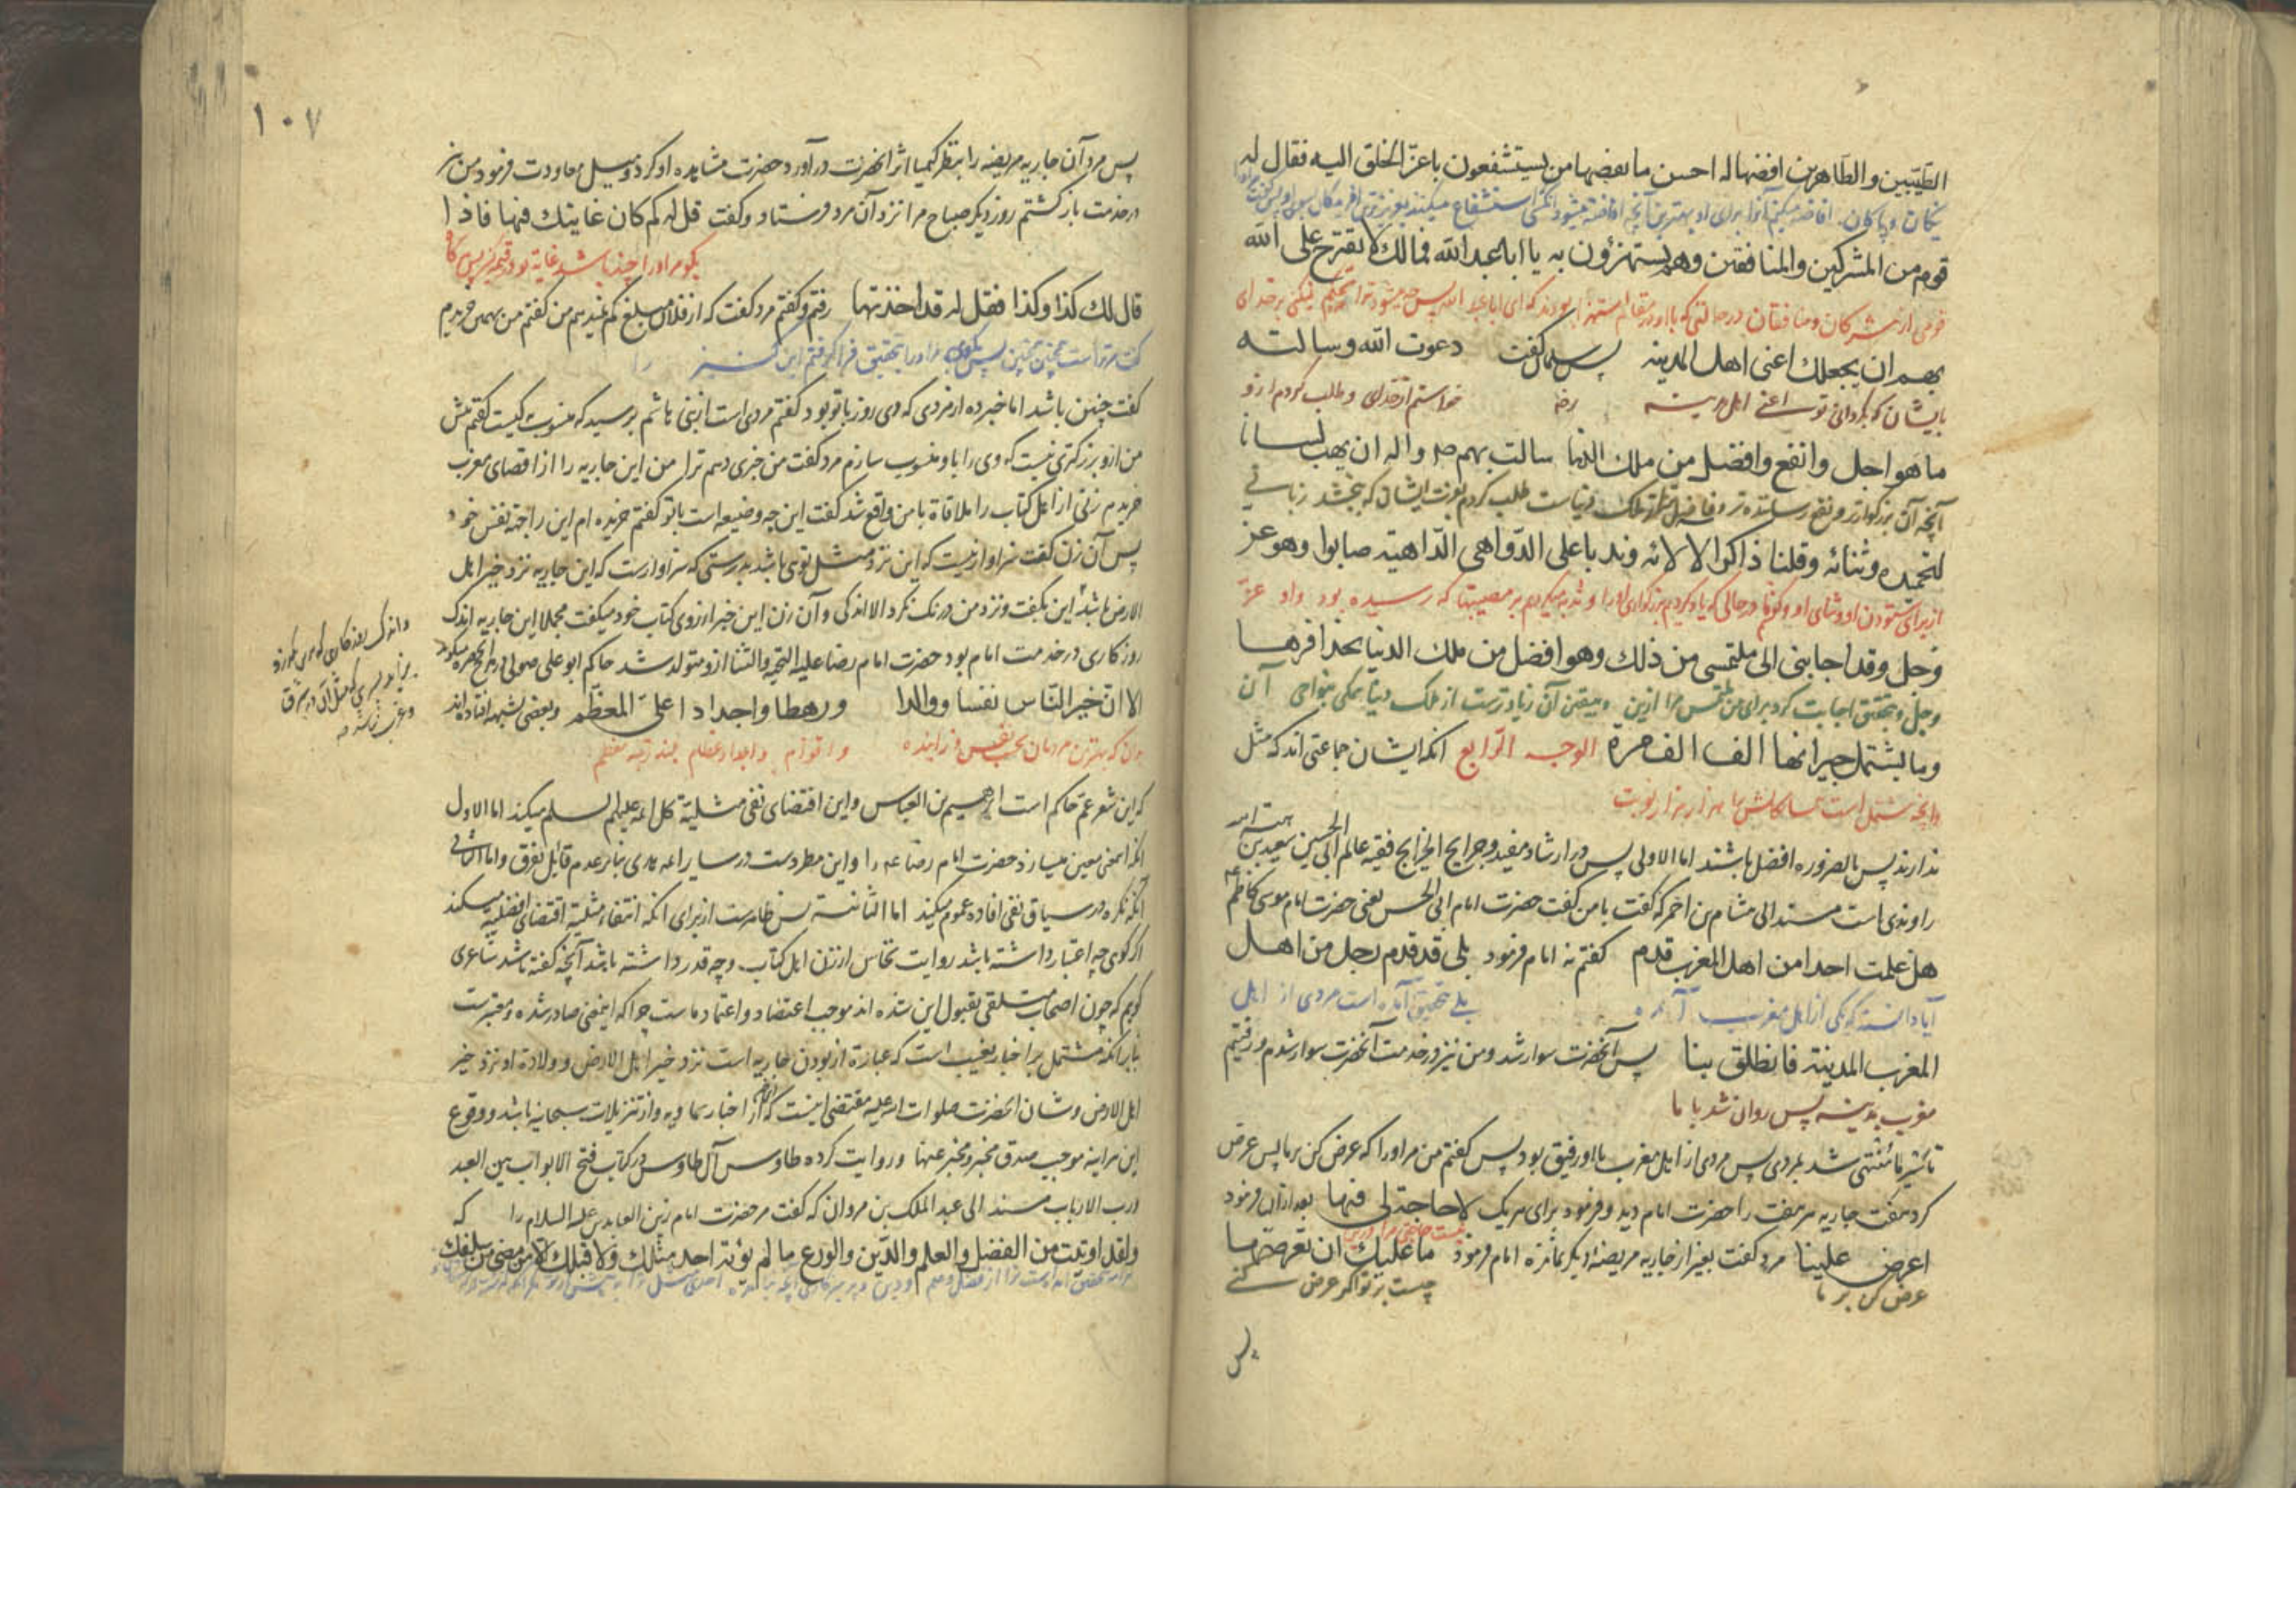 الطیّبین والطّاهرین افضها له احسن ما بعضها من یستشفعون باعزّ الخلق الیه فقال له
نیکان و پاکان
قوم من المشرکین والمنافقین وهم یستهزؤن به یا ابا عبد الله فما لك لا تقترح علی الله
قومی از مشرکان و منافقان در حالتی که با او در مقام استهزا بودند که ای ابا عبد الله پس چه میشود ترا
بهم ان یجعلك اغنی اهل المدینه پس سلمان گفت دعوت الله وسالته
بایشان که بگرداند ترا غنی اهل مدینه رض خواستم از خدای و طلب کردم از و
ما هو اجل وانفع وافضل من ملك الدنیا سالت بهم ص واله ان یهب لسانا
آنچه آن بزرگوارتر و نفع رساننده تر و فاضلتر ملک دنیاست طلب کردم بعزت ایشان که بخشد زبانی
لتحمیده وثنائه وقلبا ذاکرا لالائه وبدنا علی الدّواهی الدّاهیة صابرا وهو عز
از برای ستودن او و ثنای او
وجل وقد اجابنی الی ملتمسی من ذلك وهو افضل من ملك الدنیا بحذافیرها
وجل و بتحقیق اجابت کرد برای من ملتمس مرا ازین و بیقین آن زیادترست از ملک دنیا همگی نواحی آن
وما یشتمل خیراتها الف الف مرة الوجه الرّابع انکه ایشان جماعتی اند که مثل
وانچه مشتمل است هزار هزار نوبت
ندارند پس بالضروره افضل باشند اما الاولی پس در ارشاد مفید و جرایح الخرایج فقیه عالم ابی الحسین سعید بن هبة الله
راوندی است مسند الی هشام بن احمر که گفت با من گفت حضرت امام ابی الحسن یعنی حضرت امام موسی کاظم ع
هل علمت احدا من اهل المغرب قدم گفتم نه امام فرمود بلی قد قدم رجل من اهل
آیا دانسته که یکی از اهل مغرب آمده بلی بتحقیق آمده است مردی از اهل
المغرب المدینة فانطلق بنا پس آنحضرت سوار شد و من نیز در خدمت آنحضرت سوار شدم و رفتیم
مغرب بمدینه پس روان شد با ما
تا سیر ما منتهی شد بمردی پس مردی از اهل مغرب با او رفیق بود پس گفتم من مر او را که عرض کن بر ما پس عرض
کرد هفت جاریه هر هفت را حضرت امام دید و فرمود برای هر یک لا حاجة لی فیها بعد ازان فرمود
نیست حاجتی مرا درین
اعرض علینا مرد گفت بغیر از جاریه مریضه دیگر نمانده امام فرمود ما علیك ان تعرضها
عرض کن بر ما چیست بر تو اگر عرض کنی
پس
۱۰۷
پس مرد آن جاریه مریضه را بنظر کیمیا اثر انحضرت درآورد حضرت مشاهده او کرد و میل معاودت فرمود من نیز
در خدمت بازگشتم روز دیگر صباح مرا نزد آن مرد فرستاد و گفت قل له کم کان غایتك فیها فاذا
بگو مر او را چند باشد غایة تو در قیمة کنیز پس گاه
قال لك کذا وکذا فقل له قد اخذتها رفتم و گفتم مرد گفت که از فلان مبلغ کم نمیدهم من گفتم من بهمین خریدم
گفت چنین باشد اما خبر ده از مردی که دی روز با تو بود گفتم مردی است از بنی هاشم پرسید که منسوب به کیست گفتم بیش
من ازو بزرگتری نیست که وی را باو منسوب سازم مرد گفت من خبری دهم ترا من این جاریه را از اقصای مغرب
خریدم زنی از اهل کتاب را ملاقاة با من واقع شد گفت این چه وضیعه است با تو گفتم خریده ام این را جهة نفس خود
پس آن زن گفت سزاوار نیست که این نزد مثل توی باشد بدرستی که سزاوارست که این جاریه نزد خیر اهل
الارض باشد این بگفت و نزد من درنک نکرد الا اندکی و آن زن این خبر از روی کتاب خود میگفت مجملا این جاریه اندک
روزگاری در خدمت امام بود حضرت امام رضا علیه التحیة والثنا ازو متولد شد حاکم ابو علی صولی
الا ان خیر النّاس نفسا ووالدا ورهطا واجدادا علیّ المعظّم وبعضی بشبهه افتاده اند
بدان که بهترین مردمان بحسب نفس و زاینده و اقوام و اجداد عظام
که این شعر عم حاکم است ابرهیم بن العباس و این اقتضای نفی مثلیة کل ائمه علیهم السلم میکند اما الاول
انکه این معنی معین میسازد حضرت امام رضا ع را و این مطردست در سایر ائمه هدی بنا بر عدم قائل بفرق و اما الثانی
انکه نکره در سیاق نفی افاده عموم میکند اما الثانیة پس ظاهرست از برای انکه انتفاء مثلیة اقتضای افضلیة میکند
اگر گوی چه اعتبار داشته باشد روایت نخاس از زن اهل کتاب و چه قدر داشته باشد آنچه گفته باشد شاعری
گویم که چون اصحاب متلقی بقبول این شده اند موجب اعتضاد و اعتماد ماست چرا که این معنی صادر شده و معتبرست
بنابر انکه مشتمل بر اخبار بغیب است که عبارة از بودن جاریه است نزد خیر اهل الارض و ولادة او نزد خیر
اهل الارض و شان انحضرت صلوات الله علیه مقتضی اینست که از اخبار سماویه و از تنزیلات سبحانیه باشد و وقوع
این هر اینه موجب صدق مخبر و مخبر عنها و روایت کرده طاوس آل طاوس در کتاب فتح الابواب بین العبد
ورب الارباب مسند الی عبد الملک بن مروان که گفت مر حضرت امام زین العابدین علیه السلام را که
ولقد اوتیت من الفضل والعلم والدّین والورع ما لم یؤته احد مثلك ولا قبلك الا من مضی من سلفك